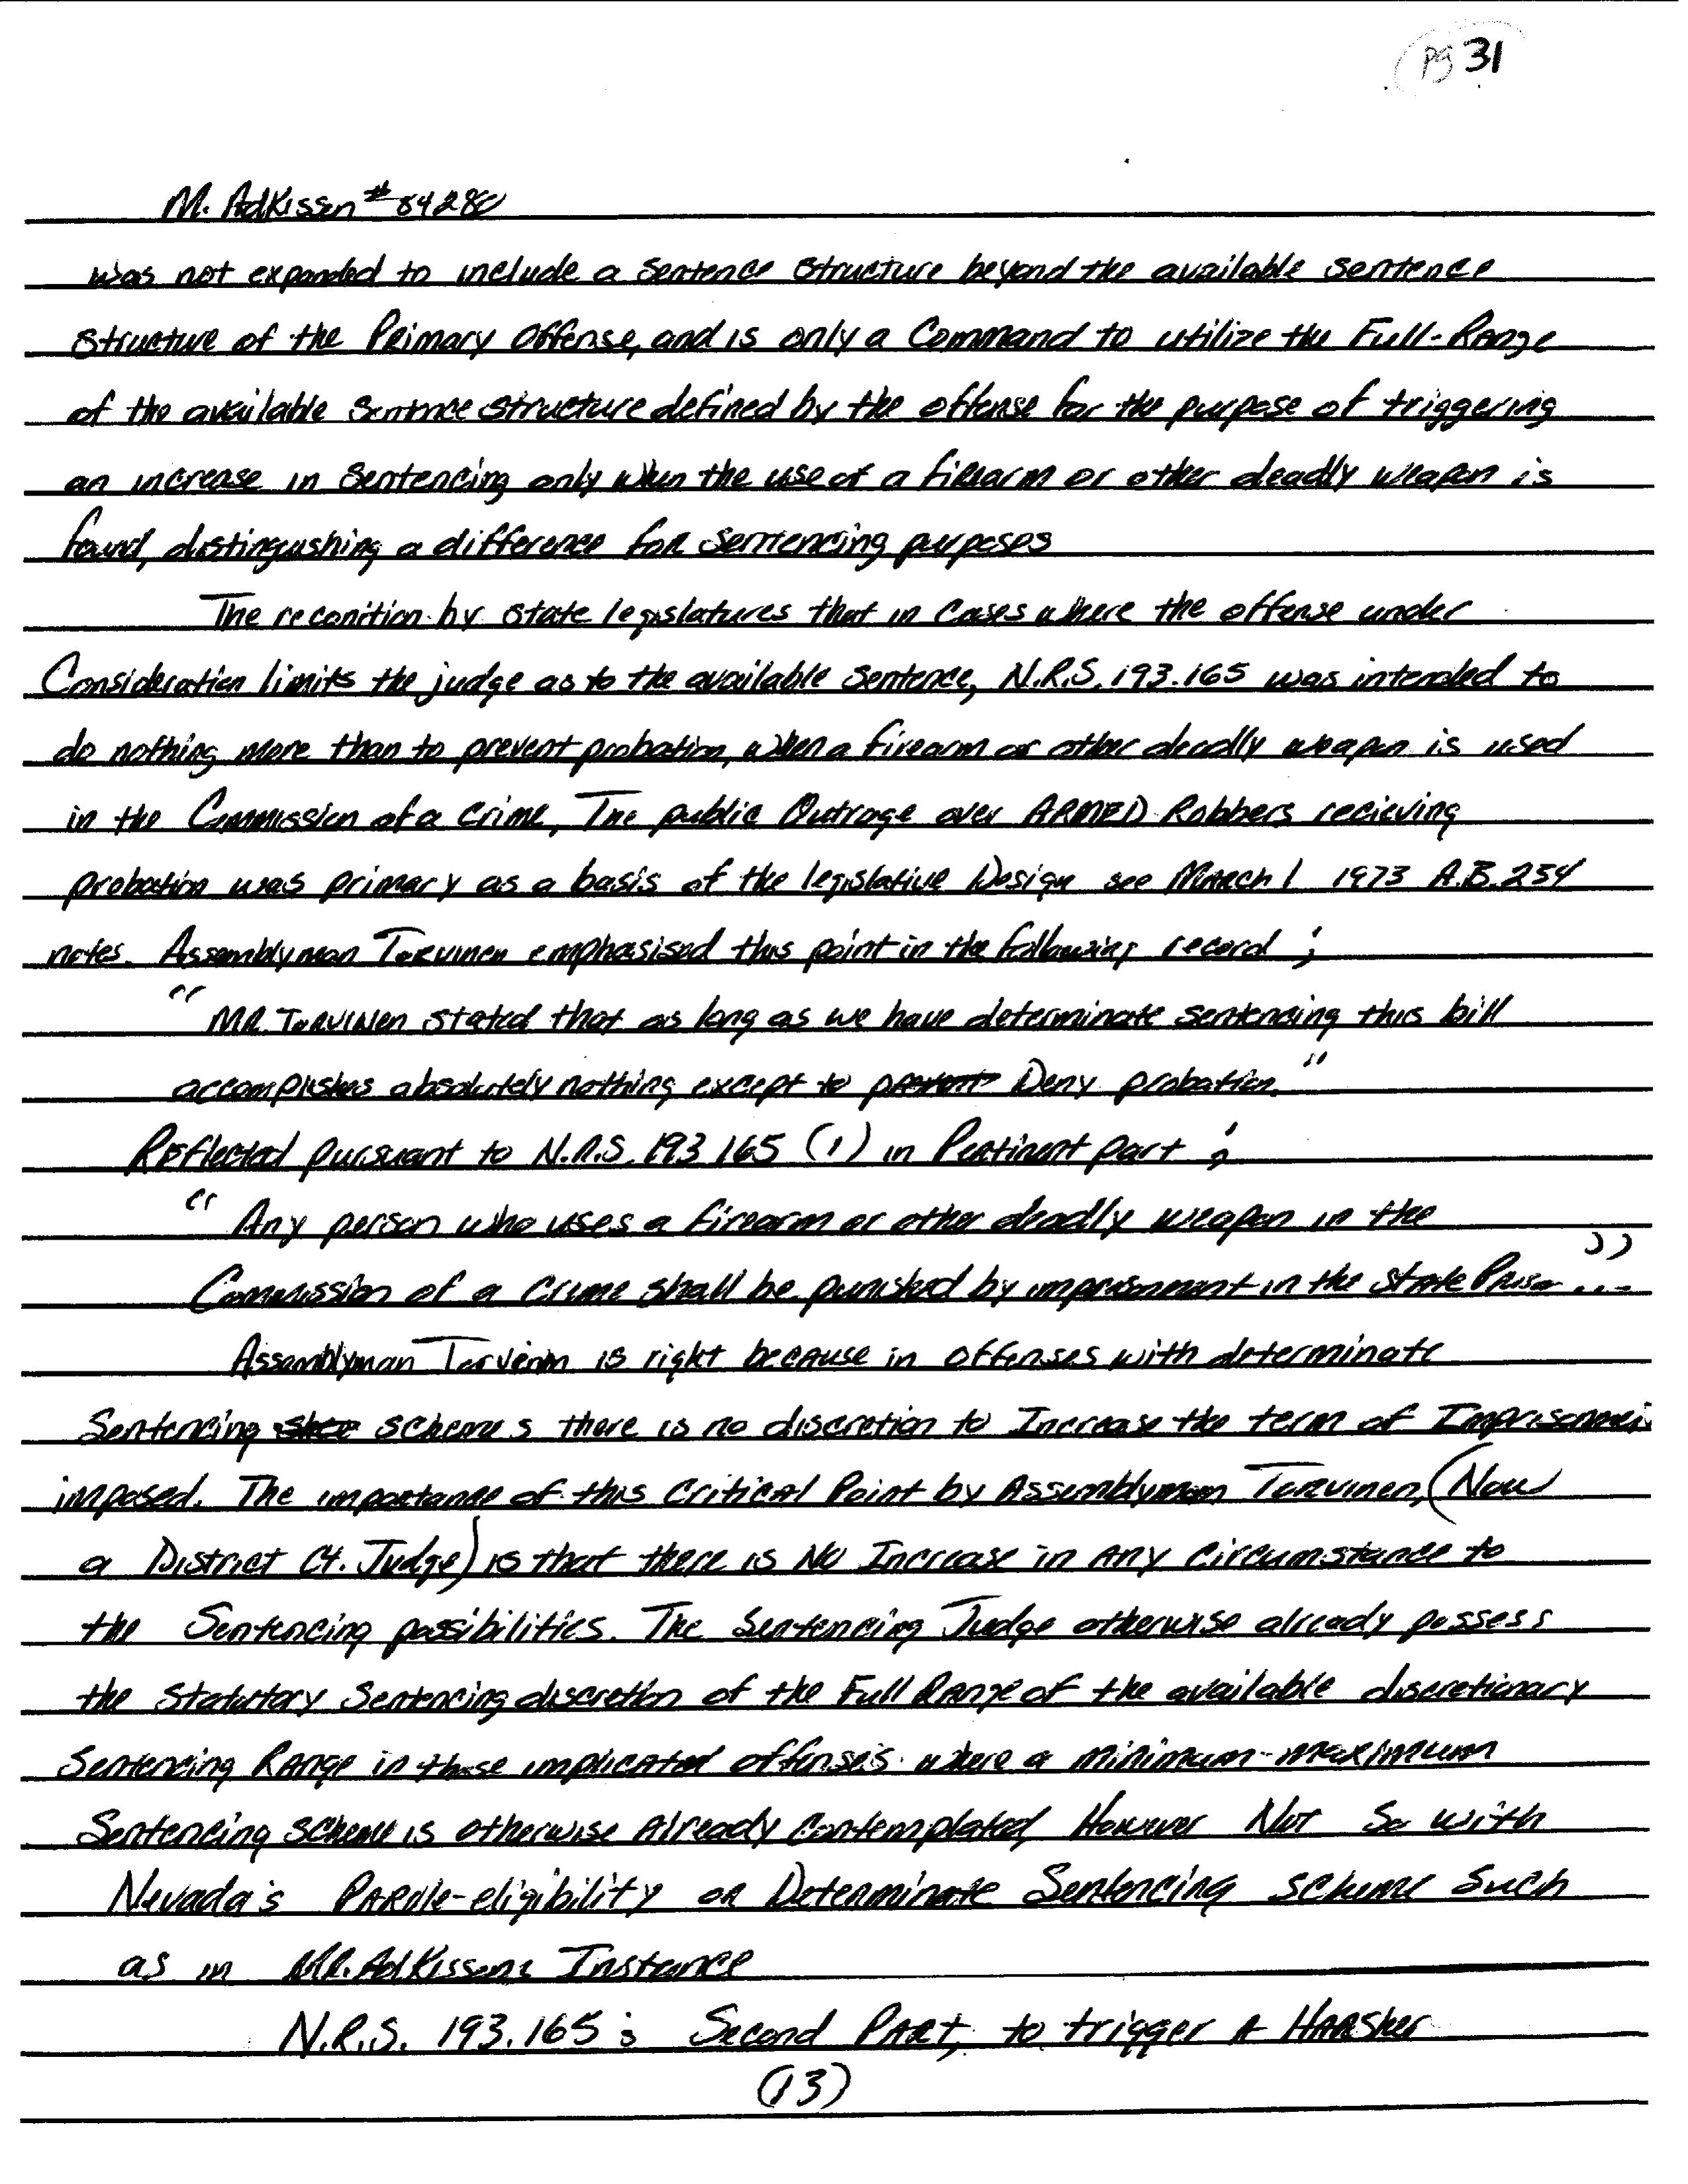 pg 31
M. Adkissen # 84280
was not expanded to include a sentence structure beyond the available sentence
structure of the Primary Offense, and is only a Command to utilize the Full-Range
of the available sentence structure defined by the offense for the purpose of triggering
an increase in sentencing only when the use of a firearm or other deadly weapon is
found, distinguishing a difference for sentencing purposes
The reconition by state legislatures that in cases where the offense under
Consideration limits the judge as to the available sentence, N.R.S. 193.165 was intended to
do nothing more than to prevent probation, when a firearm or other deadly weapon is used
in the Commission of a crime, The public Outrage over ARMED Robbers recieving
probation was primary as a basis of the legislative Design see March 1 1973 A.B. 254
notes. Assemblyman Torvinen emphasised this point in the following record ;
"MR. Torvinen stated that as long as we have determinate sentencing this bill
accomplishes absolutely nothing except to Deny probation."
Reflected pursuant to N.R.S. 193.165 (1) in Pertinent part ;
"Any person who uses a firearm or other deadly weapon in the
Commission of a crime shall be punished by imprisonment in the State Prison ..."
Assemblyman Torvinen is right because in offenses with determinate
Sentencing schemes there is no discretion to Increase the term of Imprisonment
imposed. The importance of this Critical Point by Assemblyman Torvinen, (Now
a District Ct. Judge) is that there is NO Increase in ANY circumstance to
the Sentencing possibilities. The Sentencing Judge otherwise already possess
the Statutory Sentencing discretion of the Full Range of the available discretionary
Sentencing Range in those implicated offenses where a minimum-maximum
Sentencing scheme is otherwise Already Contemplated, However Not So with
Nevada's PARole-eligibility or Determinate Sentencing scheme Such
as in MR. Adkissens Instance
N.R.S. 193.165 ; Second PART, to trigger A HARSher
(13)